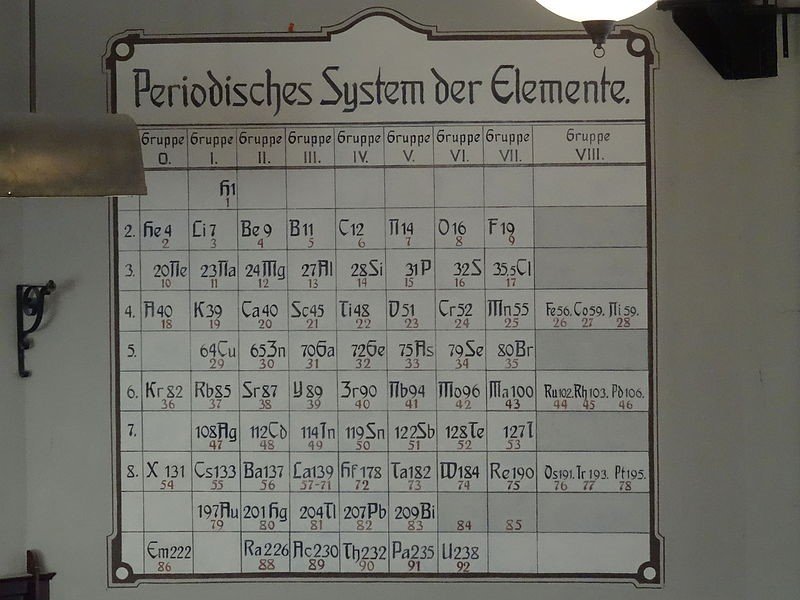 Periodisches System der Elemente.
Gruppe Gruppe Gruppe Gruppe Gruppe Gruppe Gruppe Gruppe Gruppe
0. I. II. III. IV. V. VI. VII. VIII.
H1
1
2. He4 Li7 Be9 B11 C12 N14 O16 F19
2 3 4 5 6 7 8 9
3. 20Ne 23Na 24Mg 27Al 28Si 31P 32S 35,5Cl
10 11 12 13 14 15 16 17
4. A40 K39 Ca40 Sc45 Ti48 V51 Cr52 Mn55 Fe56. Co59. Ni59.
18 19 20 21 22 23 24 25 26 27 28
5. 64Cu 65Zn 70Ga 72Ge 75As 79Se 80Br
29 30 31 32 33 34 35
6. Kr82 Rb85 Sr87 Y89 Zr90 Nb94 Mo96 Ma100 Ru102. Rh103. Pd106.
36 37 38 39 40 41 42 43 44 45 46
7. 108Ag 112Cd 114In 119Sn 122Sb 128Te 127I
47 48 49 50 51 52 53
8. X 131 Cs133 Ba137 La139 Hf178 Ta182 W184 Re190 Os191. Ir193. Pt195.
54 55 56 57-71 72 73 74 75 76 77 78
197Au 201Hg 204Tl 207Pb 209Bi
79 80 81 82 83 84 85
Em222 Ra226 Ac230 Th232 Pa235 U238
86 88 89 90 91 92